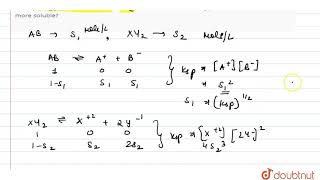 more soluble?
AB → S₁ mole/L, XY₂ → S₂ mole/L
AB ⇌ A⁺ + B⁻
1 0 0
1-S₁ S₁ S₁
Ksp = [A⁺][B⁻]
= S₁²
S₁ = (Ksp)^1/2
XY₂ ⇌ X⁺² + 2Y⁻¹
1 0 0
1-S₂ S₂ 2S₂
Ksp = [X⁺²][2Y⁻]²
4S₂³
doubtnut